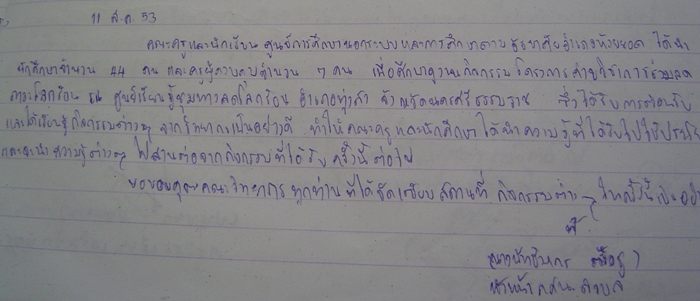 11 ส.ค. 53
คณะครูและนักเรียน ศูนย์การศึกษานอกระบบและการศึกษาตามอัธยาศัยอำเภอห้วยยอด ได้นำ
นักศึกษาจำนวน 44 คน และครูผู้ควบคุมจำนวน 7 คน เพื่อศึกษาดูงานกิจกรรมโครงการค่ายวิชาการร่วมลด
ภาวะโลกร้อน ณ ศูนย์เรียนรู้ชุมชนลดโลกร้อน อำเภอทุ่งสง จังหวัดนครศรีธรรมราช ซึ่งได้รับการต้อนรับ
และได้เรียนรู้กิจกรรมต่างๆ จากวิทยากรเป็นอย่างดี ทำให้คณะครูและนักศึกษาได้นำความรู้ที่ได้รับไปใช้ประโย
และจะนำความรู้ต่างๆ ไปสานต่อจากกิจกรรมที่ได้รับ ครั้งนี้ต่อไป
ขอขอบคุณคณะวิทยากร ทุกท่าน ที่ได้จัดเตรียมสถานที่ กิจกรรมต่าง ๆ ในครั้งนี้เป็นอย่า
หัวหน้า กศน. ตำบล